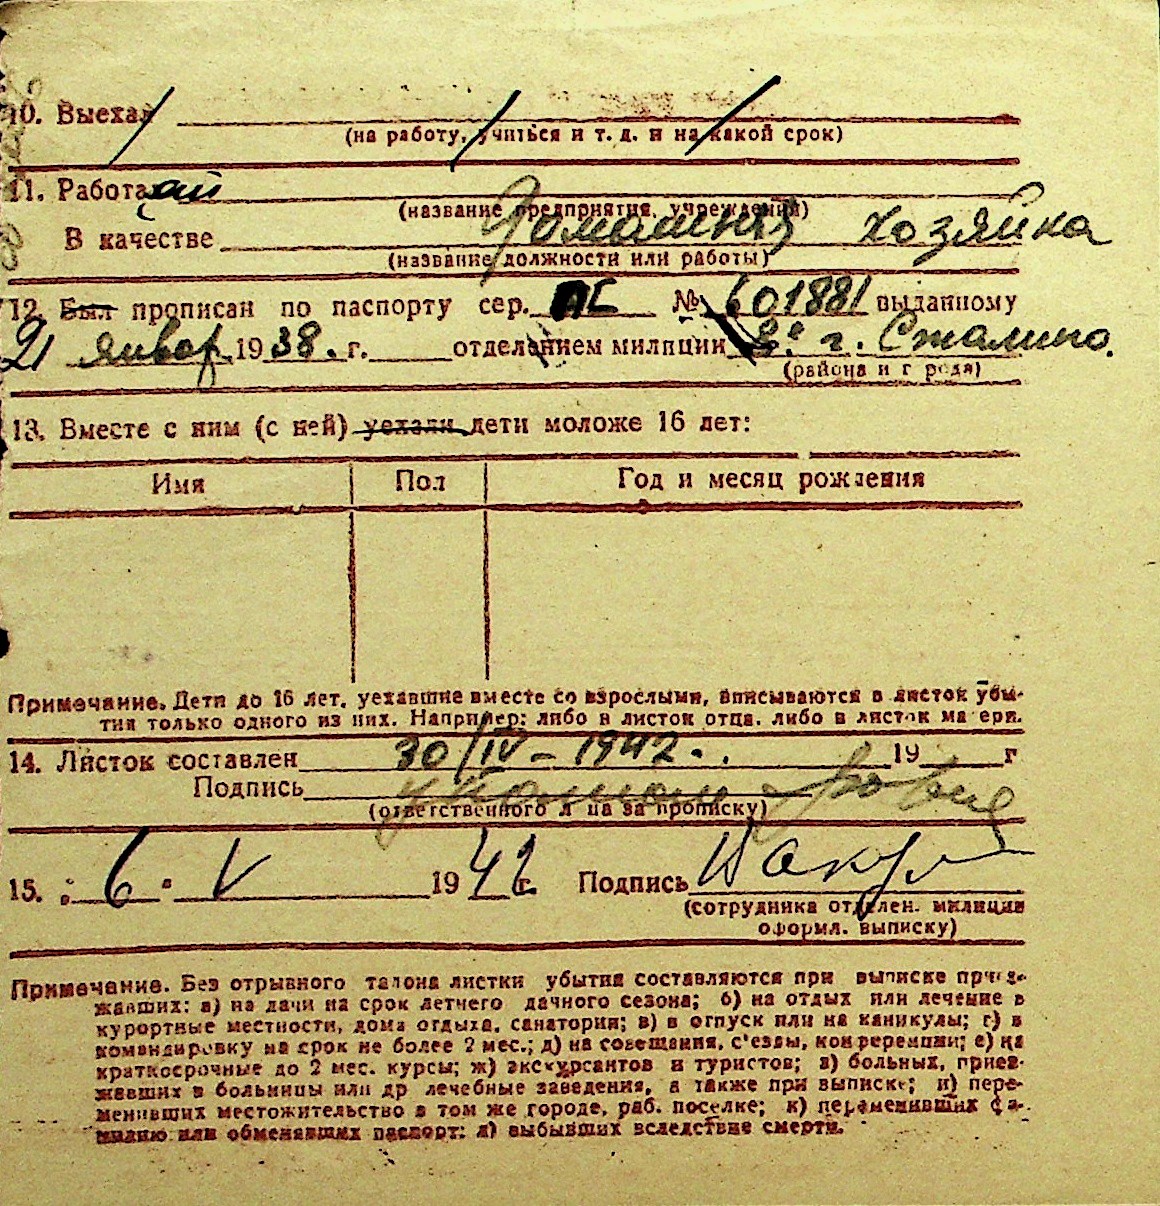 10. Выехал
(на работу, учиться и т. д. и на какой срок)
11. Работа
(название предприятия, учреждения)
В качестве Домашняя хозяйка
(название должности или работы)
12. Был прописан по паспорту сер. ПС № 601881 выданному
21 январ 1938. г. отделением милиции 8о г. Сталино.
(района и города)
13. Вместе с ним (с ней) уехали дети моложе 16 лет:
Имя Пол Год и месяц рождения
Примечание. Дети до 16 лет, уехавшие вместе со взрослыми, вписываются в листок убы-
тия только одного из них. Например: либо в листок отца, либо в листок матери.
14. Листок составлен 30/IV - 1942. 19 г
Подпись
(ответственного лица за прописку)
15. 6. V 1942 г. Подпись
(сотрудника отделен. милиции
оформл. выписку)
Примечание. Без отрывного талона листки убытия составляются при выписке приез-
жавших: а) на дачи на срок летнего дачного сезона; б) на отдых или лечение в
курортные местности, дома отдыха, санатории; в) в отпуск или на каникулы; г) в
командировку на срок не более 2 мес.; д) на совещания, с'езды, конференции; е) на
краткосрочные до 2 мес. курсы; ж) экскурсантов и туристов; з) больных, приез-
жавших в больницы или др лечебные заведения, а также при выписке; и) пере-
менивших местожительство в том же городе, раб. поселке; к) переменивших фа-
милию или обменявших паспорт; л) выбывших вследствие смерти.